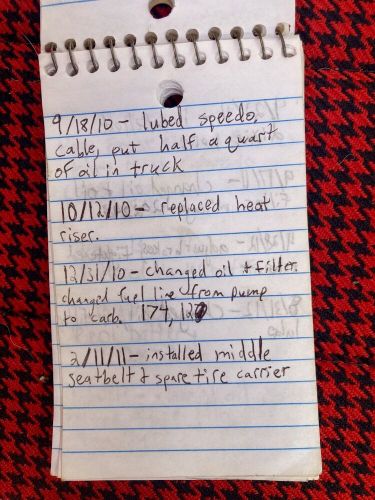 9/18/10 - lubed speedo,
cable, put half a quart
of oil in truck
10/12/10 - replaced heat
riser.
12/31/10 - changed oil + filter.
changed fuel line from pump
to carb. 174,120
2/11/11 - installed middle
seatbelt & spare tire carrier